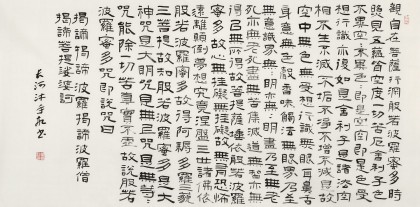 觀自在菩薩行深般若波羅蜜多時
照見五蘊皆空度一切苦厄舍利子色
不異空空不異色色即是空空即是色受
想行識亦復如是舍利子是諸法空
相不生不滅不垢不淨不增不減是故
空中無色無受想行識無眼耳鼻舌
身意無色聲香味觸法無眼界乃至
無意識界無無明亦無無明盡乃至無老
死亦無老死盡無苦集滅道無智亦無
得以無所得故菩提薩埵依般若波羅
蜜多故心無罣礙無罣礙故無有恐怖
遠離顛倒夢想究竟涅盤三世諸佛依
般若波羅蜜多故得阿耨多羅三藐
三菩提故知般若波羅蜜多是大
神咒是大明咒是無上咒是無等等
咒能除一切苦真實不虛故說般若
波羅蜜多咒即說咒曰
揭諦揭諦 波羅揭諦 波羅僧
揭諦菩提娑婆訶